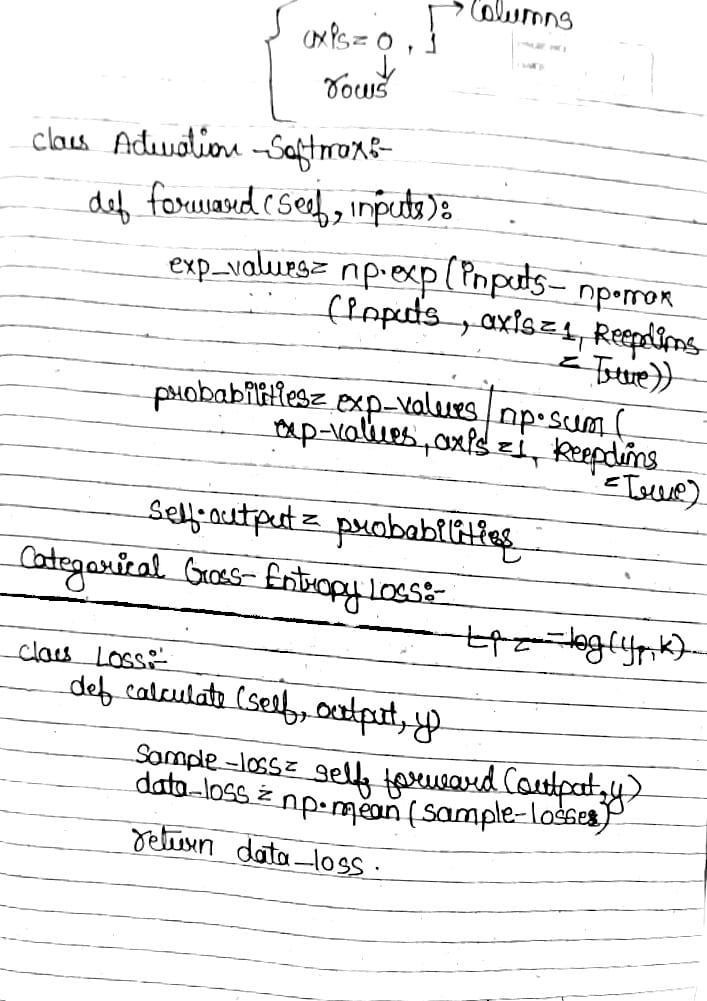 → Columns
axis = 0, 1
↓
rows
class Activation-Softmax:-
def forward(self, inputs):
exp_values = np.exp(inputs - np.max
(inputs, axis=1, keepdims
= True))
probabilities = exp-values / np.sum(
exp-values, axis=1, keepdims
= True)
self.output = probabilities
Categorical Cross-Entropy Loss:-
Lp = -log(yp,k)
class Loss:-
def calculate (self, output, y)
Sample-loss = self.forward (output,y)
data-loss = np.mean(sample-losses)
return data-loss.